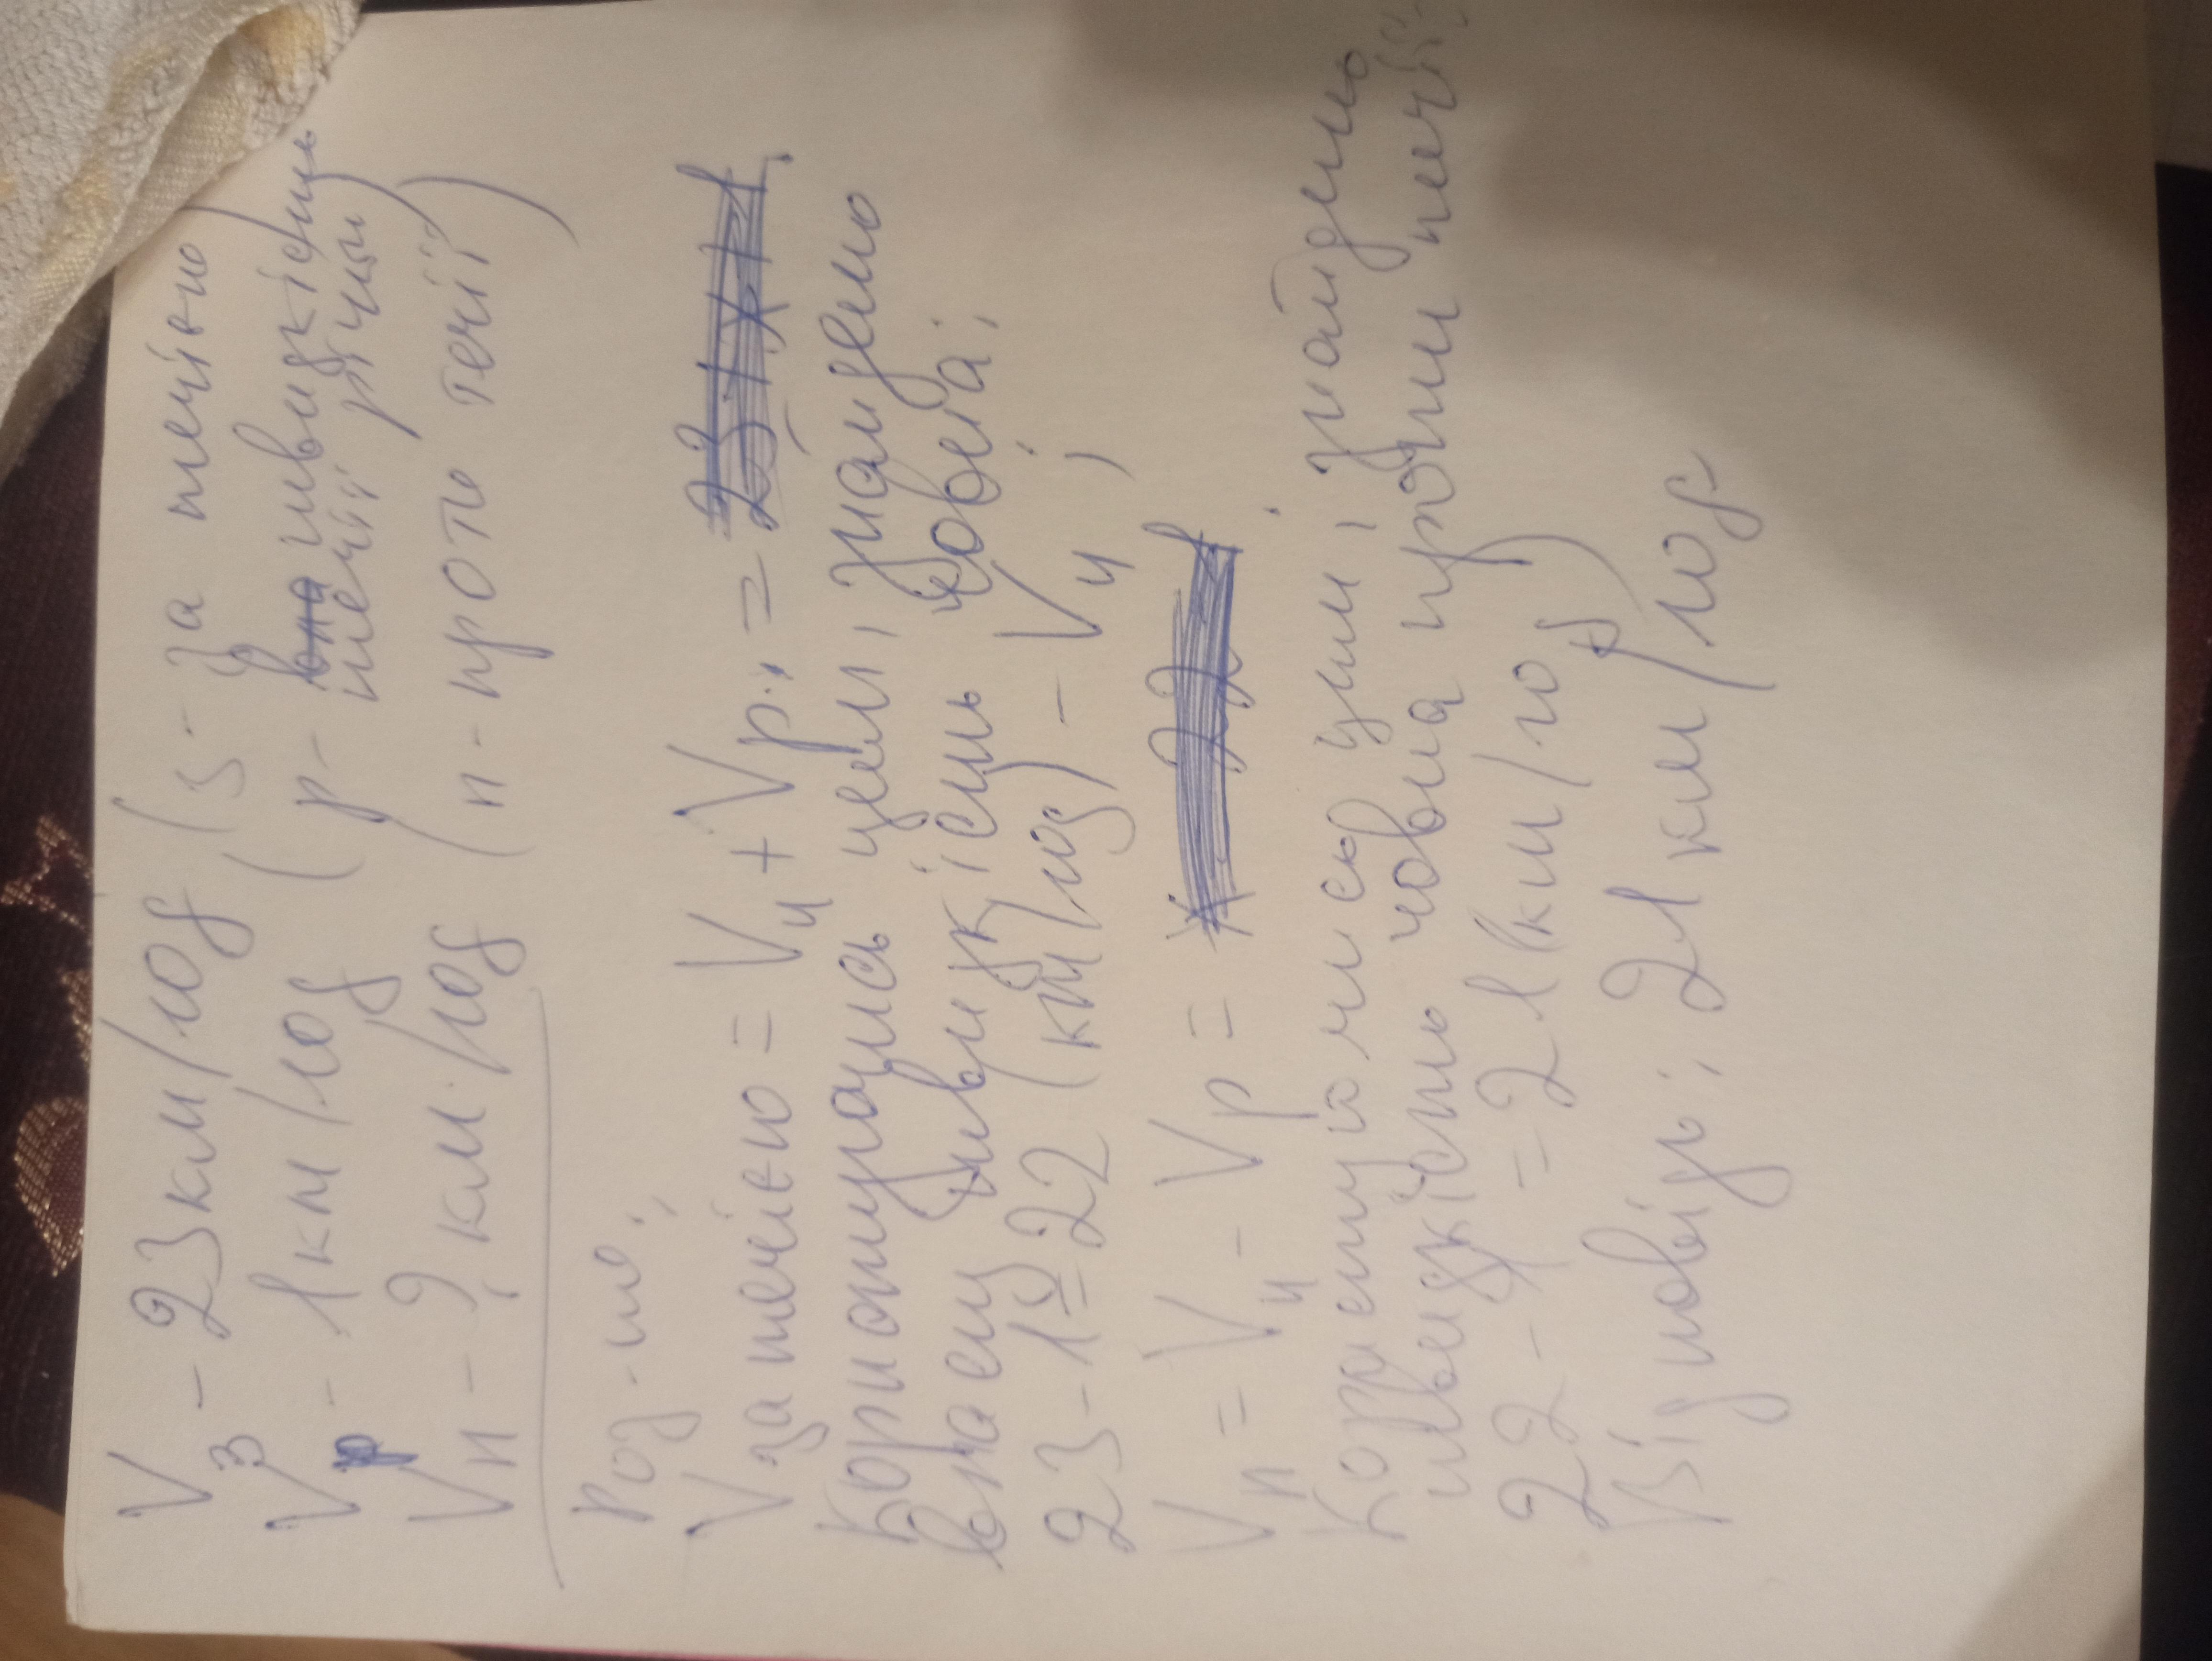 Vз - 23км/год (з - за течією)
Vр - 1км/год (р - швидкість течії річки)
Vп - ? км/год (п - проти течії)
Роз-ня:
V за течією = Vч + Vр; =
Користуючись цели, знайдемо
власну швидкість човна:
23-1=22 (км/год) - Vч;
Vп = Vч - Vр = .
Користуючись цим, знайдемо
швидкість човна проти течії:
22-1=21(км/год)
Відповідь: 21км/год